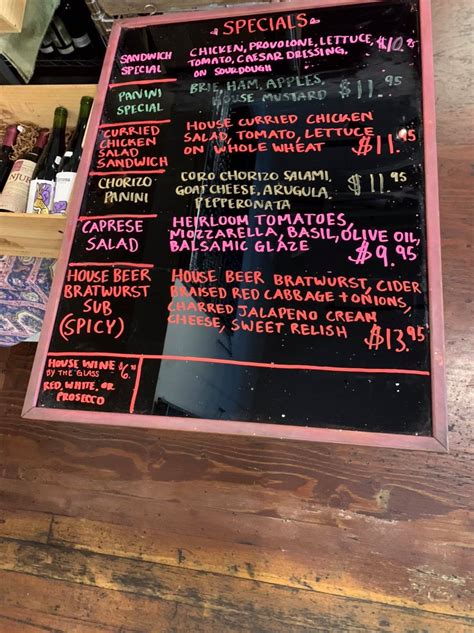 SPECIALS
SANDWICH SPECIAL
CHICKEN, PROVOLONE, LETTUCE,
TOMATO, CAESAR DRESSING,
ON SOURDOUGH
PANINI SPECIAL
BRIE, HAM, APPLES,
HOUSE MUSTARD $11.95
CURRIED CHICKEN SALAD SANDWICH
HOUSE CURRIED CHICKEN
SALAD, TOMATO, LETTUCE
ON WHOLE WHEAT $11.95
CHORIZO PANINI
CORO CHORIZO SALAMI,
GOAT CHEESE, ARUGULA, $11.95
PEPPERONATA
CAPRESE SALAD
HEIRLOOM TOMATOES,
MOZZARELLA, BASIL, OLIVE OIL,
BALSAMIC GLAZE $9.95
HOUSE BEER BRATWURST SUB (SPICY)
HOUSE BEER BRATWURST, CIDER
BRAISED RED CABBAGE + ONIONS,
CHARRED JALAPENO CREAM
CHEESE, SWEET RELISH $13.95
HOUSE WINE
BY THE GLASS
RED, WHITE, OR
PROSECCO